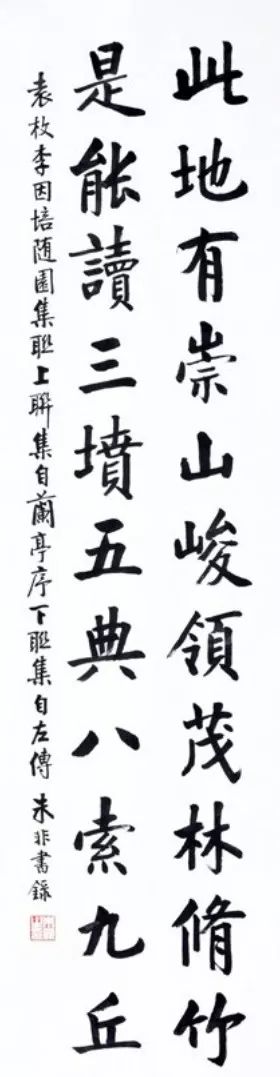 此地有崇山峻領茂林脩竹
是能讀三墳五典八索九丘
袁枚李因培随園集聮上聨集自蘭亭序下聮集自左傳 朱非書錄